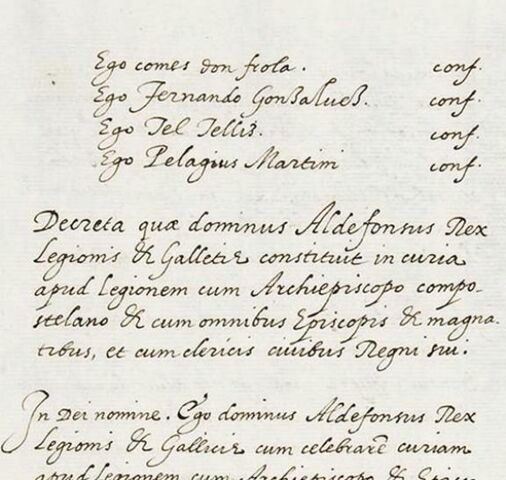 Ego comes don frola. conf.
Ego Fernando Gonsalues. conf.
Ego Tel Tellis. conf.
Ego Pelagius Martini conf.
Decreta quæ dominus Aldefonsus Rex
Legionis & Galletiæ constituit in curia
apud Legionem cum Archiepiscopo compo-
stelano & cum omnibus Episcopis & magna-
tibus, et cum clericis ciuibus Regni sui.
In Dei nomine. Ego dominus Aldefonsus Rex
Legionis & Galliciæ cum celebrarē curiam
apud Legionem cum Archiepiscopo &